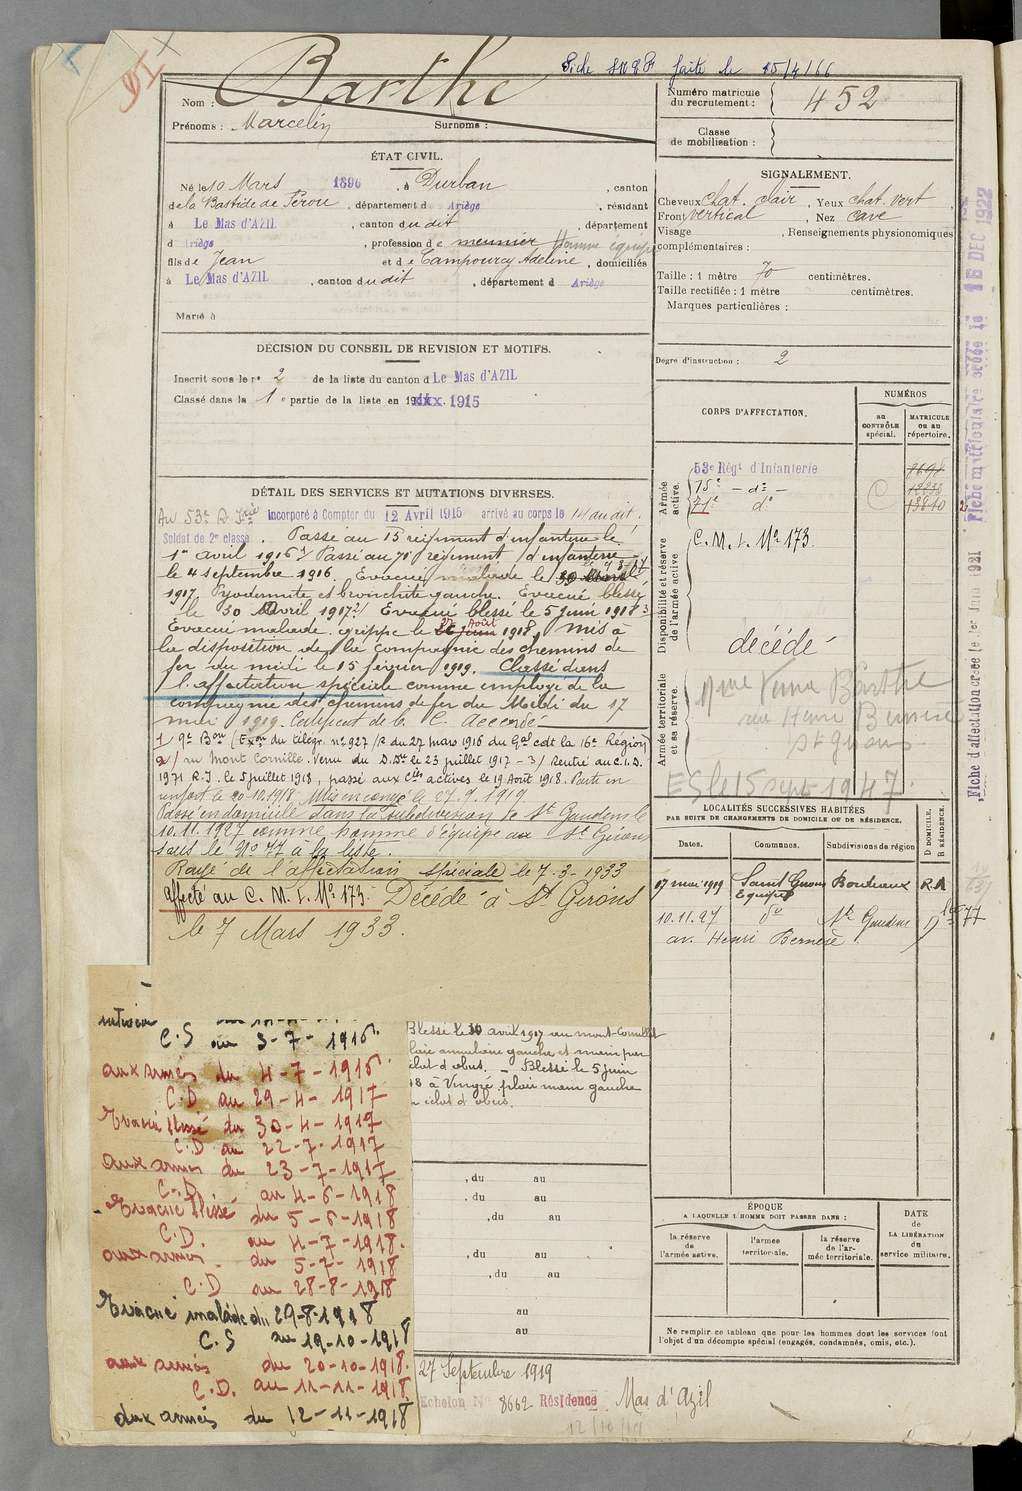 Fiche faite le 15/4/66
Nom : Barthe
Prénoms : Marcelin Surnoms :
Numéro matricule du recrutement : 452
Classe de mobilisation :
ÉTAT CIVIL.
Né le 10 Mars 1896, à Durban, canton
de la Bastide de Sérou, département d Ariège, résidant
à Le Mas d'AZIL, canton dudit, département
d Ariège, profession de meunier Homme équipe
fils de Jean et de Campourcy Adeline, domiciliés
à Le Mas d'AZIL, canton dudit, département d Ariège
Marié à
SIGNALEMENT.
Cheveux chat. clair, Yeux chat. vert,
Front vertical, Nez cave
Visage, Renseignements physionomiques
complémentaires :
Taille : 1 mètre 70 centimètres.
Taille rectifiée : 1 mètre centimètres.
Marques particulières :
Degré d'instruction : 2
DÉCISION DU CONSEIL DE REVISION ET MOTIFS.
Inscrit sous le n° 2 de la liste du canton d Le Mas d'AZIL
Classé dans la 1e partie de la liste en 1915
DÉTAIL DES SERVICES ET MUTATIONS DIVERSES.
Au 53e R. Incorporé à Compter du 12 Avril 1915 arrivé au corps le 14 au dit.
Soldat de 2e classe. Passé au 15 régiment d'infanterie le
1er avril 1916 1/ Passé au 71e régiment d'infanterie
le 4 septembre 1916. Evacué malade le
1917 Pyodermite et bronchite gauche. Evacué blessé
le 30 Avril 1917 2/ Evacué blessé le 5 juin 1918 3
Evacué malade. grippe le 27 Août 1918, mis à
la disposition de la compagnie des chemins de
fer du midi le 15 février 1919. Classé dans
l'affectation spéciale comme employé de la
compagnie des chemins de fer du Midi du 17
mai 1919. Certificat de b. C. Accordé
1/ 9e Bon (Exon du télégr. n° 927/R du 27 mars 1916 du Gal cdt la 16e Région)
2/ au Mont Cornillet. Venu du D.D. le 23 juillet 1917 - 3/ Rentré au C.I.D.
1971 R.I. le 5 juillet 1918, passé aux Cies actives le 19 Août 1918. Parti en
renfort le 20-10-1918. Mis en congé le 27.9.1919.
Passé en domicile dans la Subdivision de St Gaudens le
10.11.1927 comme homme d'équipe aux St Girons
sous le N° 77 à la liste.
Rayé de l'affectation spéciale le 7-3-1933
affecté au C. M. I. N° 173. Décédé à St Girons
le 7 Mars 1933.
CORPS D'AFFECTATION.
NUMÉROS
au CONTRÔLE spécial.
MATRICULE ou au répertoire.
Armée active.
53e Régt d'Infanterie
15e - do -
71e do
13810
Disponibilité et réserve de l'armée active.
C. M. I. N° 173.
décédé
Armée territoriale et sa réserve.
Mme Veuve Barthe
rue Henri Bernère
St Girons
ES le 15 sept 1947.
LOCALITÉS SUCCESSIVES HABITÉES
PAR SUITE DE CHANGEMENTS DE DOMICILE OU DE RÉSIDENCE.
Dates. Communes. Subdivisions de région D DOMICILE. R RÉSIDENCE.
17 mai 1919 Saint Girons Bordeaux R.
Equipe
10.11.27 do St Gaudens D 77
av. Henri Bernère
intérieur
C.S au 3-7-1916.
aux armées du 4-7-1916
C.D au 29-4-1917
Evacué blessé du 30-4-1917
C.D au 22-7-1917
aux armées du 23-7-1917
C.D. au 4-6-1918
Evacué blessé du 5-6-1918
C.D. au 4-7-1918.
aux armées du 5-7-1918
C.D au 28-8-1918
Evacué malade du 29-8-1918
C.S au 19-10-1918
aux armées du 20-10-1918.
C.D. au 11-11-1918
aux armées du 12-11-1918
Blessé le 30 avril 1917 au mont-Cornillet
plaie annulaire gauche et main par
éclat d'obus. - Blessé le 5 juin
18 à Vingré plaie main gauche
éclat d'obus.
, du au
, du au
, du au
, du au
, du au
au
au
ÉPOQUE
A LAQUELLE L'HOMME DOIT PASSER DANS :
la réserve de l'armée active.
l'armée territoriale.
la réserve de l'armée territoriale.
DATE de LA LIBÉRATION du service militaire.
Ne remplir ce tableau que pour les hommes dont les services font
l'objet d'un décompte spécial (engagés, condamnés, omis, etc.).
27 Septembre 1919
Echelon N° 8662 Résidence Mas d'Azil
Fiche d'affectation créée le 1er Juin 1921
Fiche matriculaire créée le 16 DEC 1922